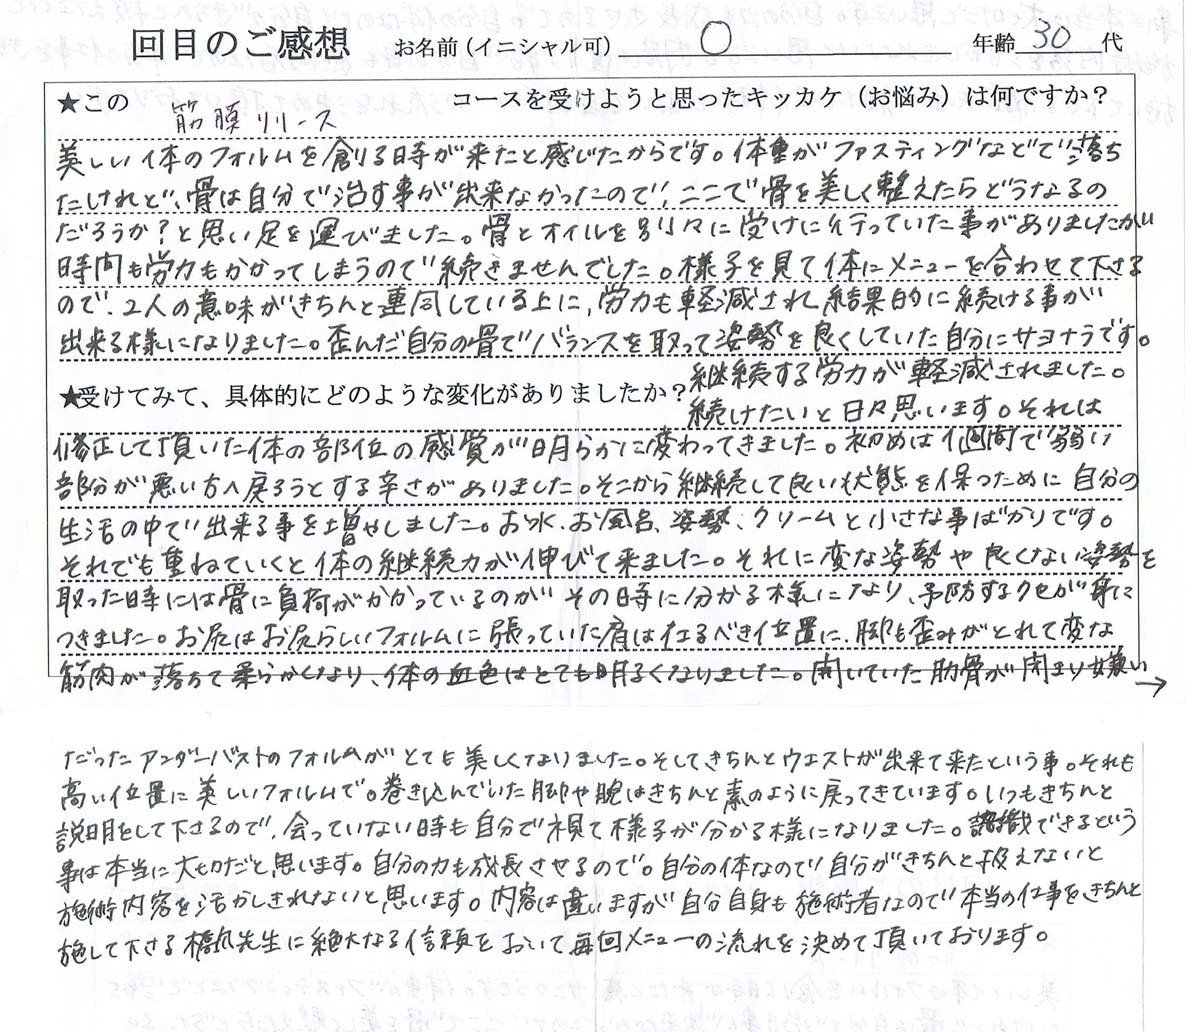 回目のご感想 お名前(イニシャル可) 〇 年齢 30 代
★この 筋膜リリース コースを受けようと思ったキッカケ（お悩み）は何ですか？
美しい体のフォルムを創る時が来たと感じたからです。体重がファスティングなどで落ち
たけれど、骨は自分で治す事が出来なかったので、ここで骨を美しく整えたらどうなるの
だろうか？と思い足を運びました。骨とオイルを別々に受けに行っていた事がありましたが
時間も労力もかかってしまうので続きませんでした。様子を見て体にメニューを合わせて下さる
ので、2人の意味がきちんと連同している上に、労力も軽減され、結果的に続ける事が
出来る様になりました。歪んだ自分の骨でバランスを取って姿勢を良くしていた自分にサヨナラです。
継続する労力が軽減されました。
★受けてみて、具体的にどのような変化がありましたか？
続けたいと日々思います。それは
修正して頂いた体の部位の感覚が明らかに変わってきました。初めは1週間で弱い
部分が悪い方へ戻ろうとする辛さがありました。そこから継続して良い状態を保つために自分の
生活の中で出来る事を増やしました。お水、お風呂、姿勢、クリームと小さな事ばかりです。
それでも重ねていくと体の継続力が伸びて来ました。それに変な姿勢や良くない姿勢を
取った時には骨に負荷がかかっているのがその時に分かる様になり、予防するクセが身に
つきました。お尻はお尻らしいフォルムに張っていた肩は在るべき位置に、脚も歪みがとれて変な
筋肉が落ちて柔らかくなり、体の血色はとても明るくなりました。開いていた肋骨が閉まり嫌い→
だったアンダーバストのフォルムがとても美しくなりました。そしてきちんとウエストが出来て来たという事。それも
高い位置に美しいフォルムで。巻き込んでいた脚や腕はきちんと素のように戻ってきています。いつもきちんと
説明をして下さるので、会っていない時も自分で視て様子が分かる様になりました。認識できるという
事は本当に大切だと思います。自分の力も成長させるので。自分の体なので自分がきちんと扱えないと
施術内容を活かしきれないと思います。内容は違いますが自分自身も施術者なので本当の仕事をきちんと
施して下さる先生に絶大なる信頼をおいて毎回メニューの流れを決めて頂いております。